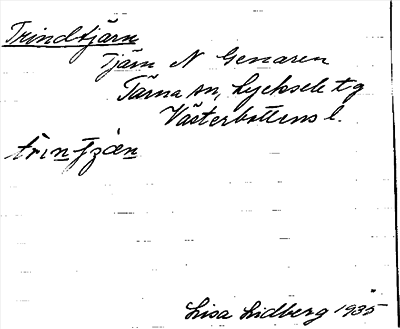 Trindtjärn
Tjärn N Genaren
Tärna sn, Lycksele tg
Västerbottens l.
trinfzæn
Lisa Lidberg 1935